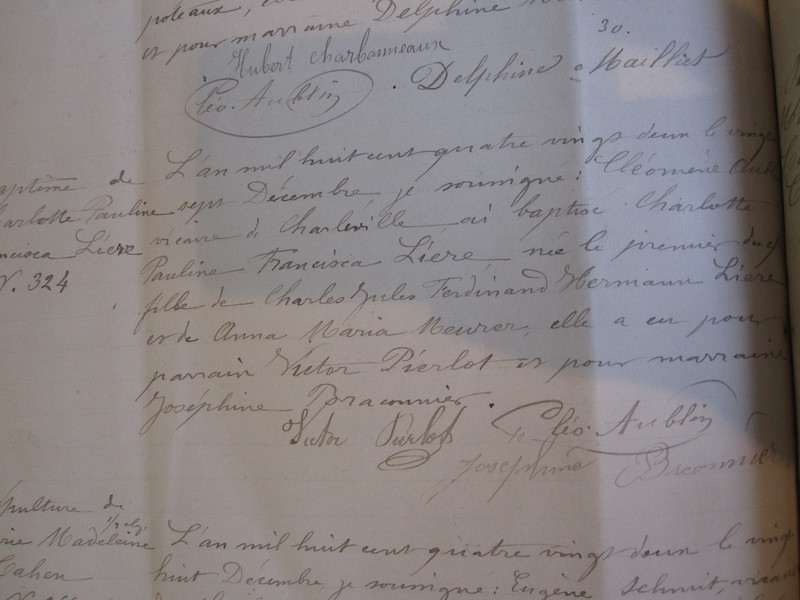 poteaux,
et pour marraine Delphine
30.
Hubert Charbonneaux
Cléo. Aublin . Delphine Mailliet
baptême de
Charlotte Pauline
Francisca Lière
N. 324
L'an mil huit cent quatre vingt deux le vingt
sept Décembre je soussigné: Cléomène Aubl
vicaire à Charleville ai baptisé Charlotte
Pauline Francisca Lière, née le premier du
fille de Charles Jules Ferdinand Hermann Lière
et de Anna Maria Meurer, elle a eu pour
parrain Victor Pierlot et pour marraine
Joséphine Braconnier.
Victor Pierlot Cléo. Aublin
Josephine Braconnier
Sépulture de
Marie Madeleine
Cahen
L'an mil huit cent quatre vingt deux le vingt
huit Décembre, je soussigné: Eugène Schmit, vicaire